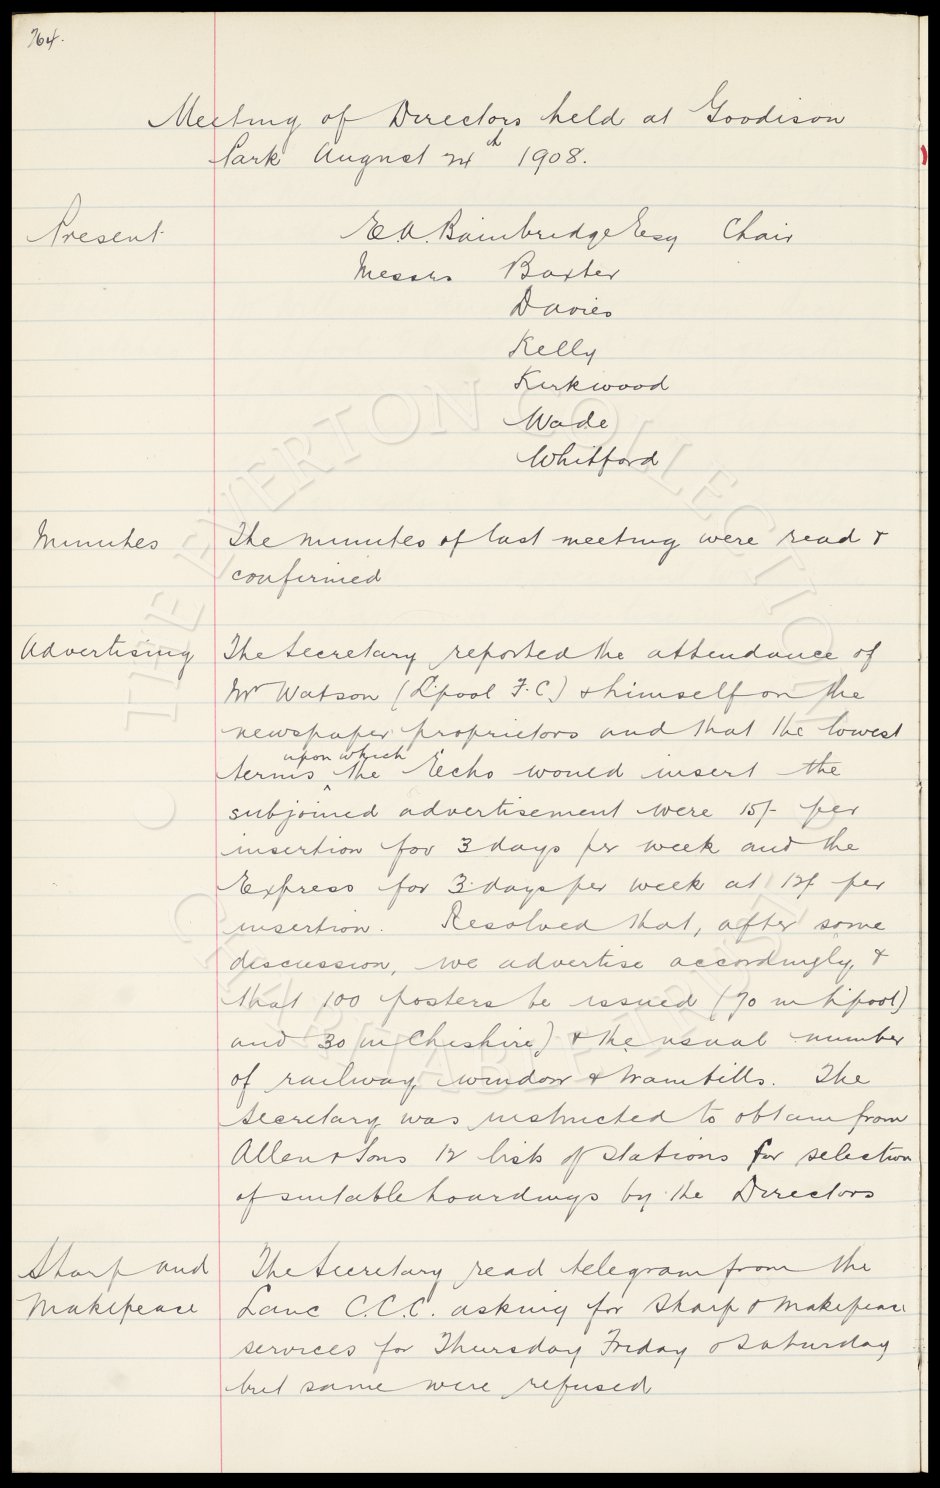 764.
Meeting of Directors held at Goodison
Park August 24th 1908.
Present E. A. Bainbridge Esq Chair
Messrs Baxter
Davies
Kelly
Kirkwood
Wade
Whitford
Minutes The minutes of last meeting were read &
confirmed
Advertising The Secretary reported the attendance of
Mr Watson (L'pool F.C.) & himself on the
newspaper proprietors and that the lowest
terms upon which the Echo would insert the
subjoined advertisement were 15/- per
insertion for 3 days per week and the
Express for 3 days per week at 12/- per
insertion. Resolved that, after some
discussion, we advertise accordingly, &
that 100 posters be issued (70 in L'pool)
and 30 in Cheshire) & the usual number
of railway, window & trambills. The
Secretary was instructed to obtain from
Allen & Sons 12 lists of stations for selection
of suitable hoardings by the Directors
Sharp and The Secretary read telegram from the
Makepeace Lanc C.C.C. asking for Sharp & Makepeace
services for Thursday Friday & Saturday
but same were refused
© THE EVERTON COLLECTION
CHARITABLE TRUST